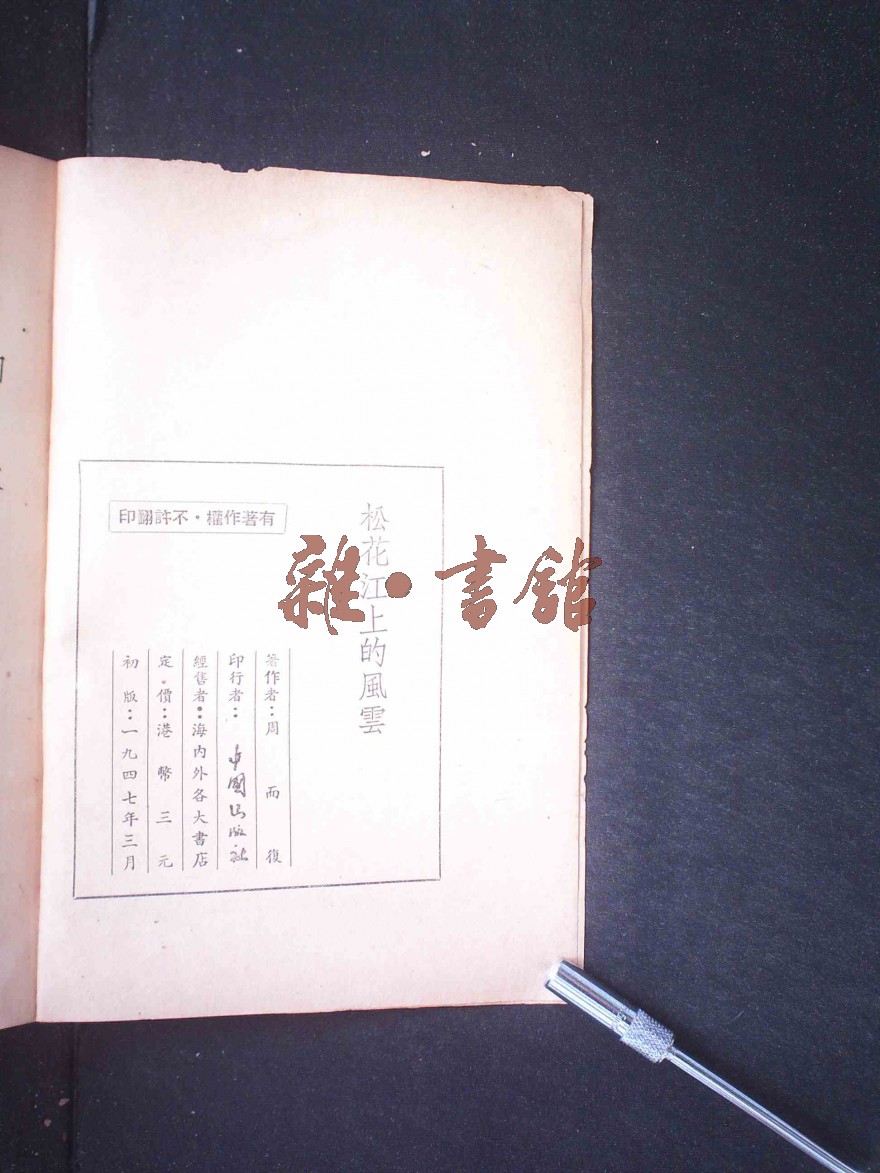 松花江上的風雲
有著作權・不許翻印
著作者：周而復
印行者：中國出版社
經售者：海內外各大書店
定價：港幣三元
初版：一九四七年三月
雜・書館